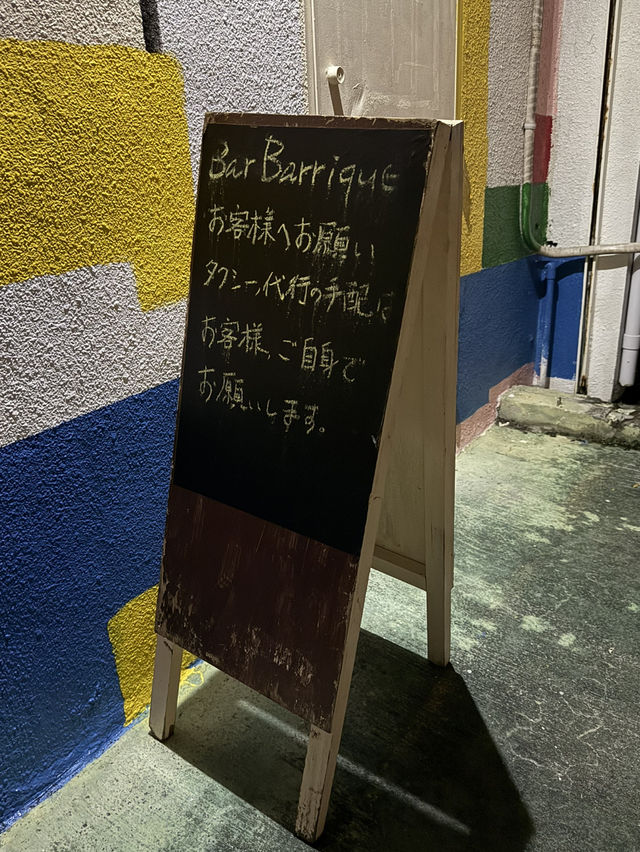 Bar Barrique
お客様へお願い
タクシー、代行の手配は
お客様、ご自身で
お願いします。